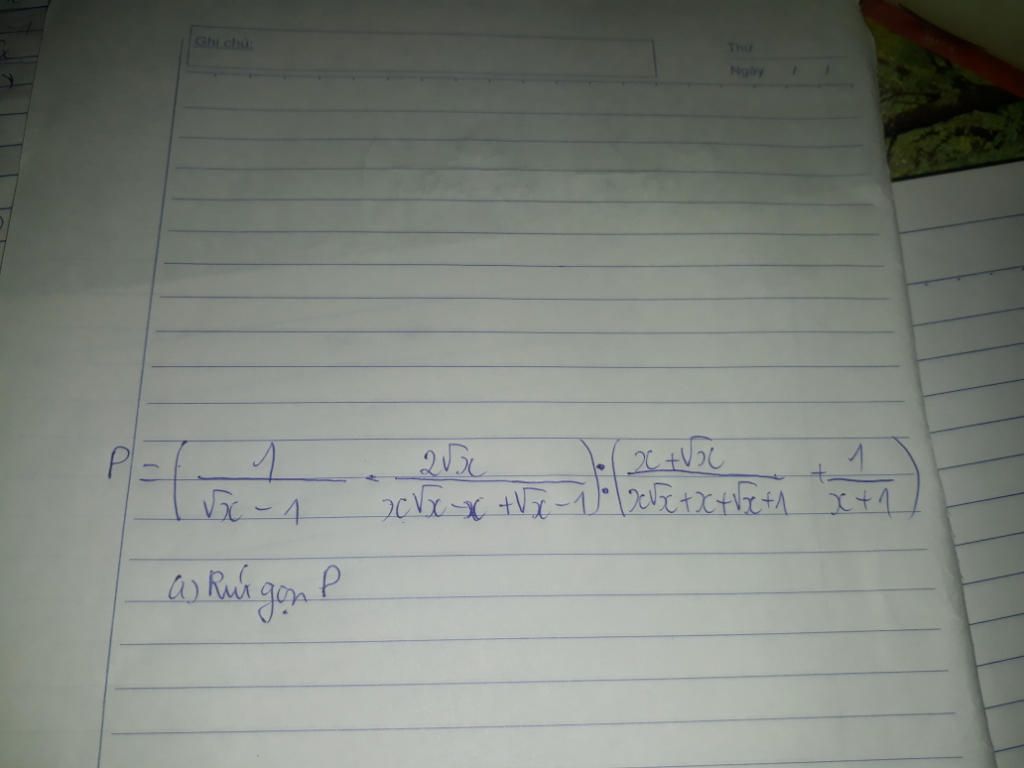 Ghi chú:
Thứ
Ngày / /
P = ( 1/(√x - 1) - 2√x/(x√x - x + √x - 1) ) : ( (x + √x)/(x√x + x + √x + 1) + 1/(x + 1) )
a) Rút gọn P